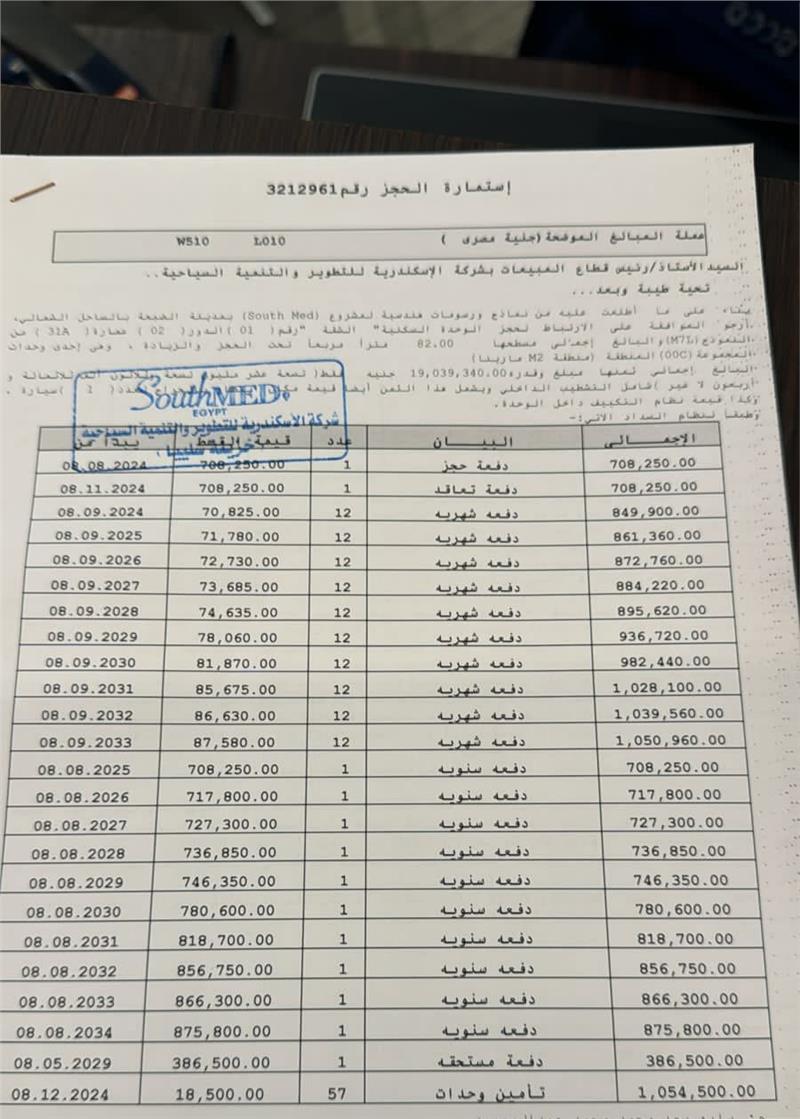 إستمارة الحجز رقم 3212961
عملة المبالغ الموضحة (جنية مصرى ) L010 W510
السيد الأستاذ/رئيس قطاع المبيعات بشركة الإسكندرية للتطوير والتنمية السياحية..
تحية طيبة وبعد...
بناء على ما أطلعت عليه من نماذج ورسومات هندسية لمشروع (South Med) بمدينة الضبعة بالساحل الشمالى،
أرجو الموافقة على الارتباط لحجز الوحدة السكنية" الشقة "رقم( 01 )الدور( 02 ) عمارة( 31A ) من
النموذج(M7L) والبالغ إجمالى مسطحها 82.00 مترا مربعا تحت العجز والزيادة ، وهى إحدى وحدات
المجموعة (00C) المنطقة (منطقة M2 مارينا)
البالغ إجمالي ثمنها مبلغ وقدره 19,039,340.00 جنيه فقط( تسعة عشر مليون تسعة وثلاثون ألف ثلاثمائة و
أربعون لا غير )شامل التشطيب الداخلي ويشمل هذا الثمن أيضا قيمة سيارة ،
وكذا قيمة نظام التكييف داخل الوحدة.
وطبقا لنظام السداد الآتي:-
SouthMED
EGYPT
شركة الأسكندرية للتطوير والتنمية السياحية
الإجمـــالى البيـــان عدد قيمة القسط يبدأ من
708,250.00 دفعة حجز 1 708,250.00 08.08.2024
708,250.00 دفعة تعاقد 1 708,250.00 08.11.2024
849,900.00 دفعه شهريه 12 70,825.00 08.09.2024
861,360.00 دفعه شهريه 12 71,780.00 08.09.2025
872,760.00 دفعه شهريه 12 72,730.00 08.09.2026
884,220.00 دفعه شهريه 12 73,685.00 08.09.2027
895,620.00 دفعه شهريه 12 74,635.00 08.09.2028
936,720.00 دفعه شهريه 12 78,060.00 08.09.2029
982,440.00 دفعه شهريه 12 81,870.00 08.09.2030
1,028,100.00 دفعه شهريه 12 85,675.00 08.09.2031
1,039,560.00 دفعه شهريه 12 86,630.00 08.09.2032
1,050,960.00 دفعه شهريه 12 87,580.00 08.09.2033
708,250.00 دفعه سنويه 1 708,250.00 08.08.2025
717,800.00 دفعه سنويه 1 717,800.00 08.08.2026
727,300.00 دفعه سنويه 1 727,300.00 08.08.2027
736,850.00 دفعه سنويه 1 736,850.00 08.08.2028
746,350.00 دفعه سنويه 1 746,350.00 08.08.2029
780,600.00 دفعه سنويه 1 780,600.00 08.08.2030
818,700.00 دفعه سنويه 1 818,700.00 08.08.2031
856,750.00 دفعه سنويه 1 856,750.00 08.08.2032
866,300.00 دفعه سنويه 1 866,300.00 08.08.2033
875,800.00 دفعه سنويه 1 875,800.00 08.08.2034
386,500.00 دفعة مستحقه 1 386,500.00 08.05.2029
1,054,500.00 تأمين وحدات 57 18,500.00 08.12.2024